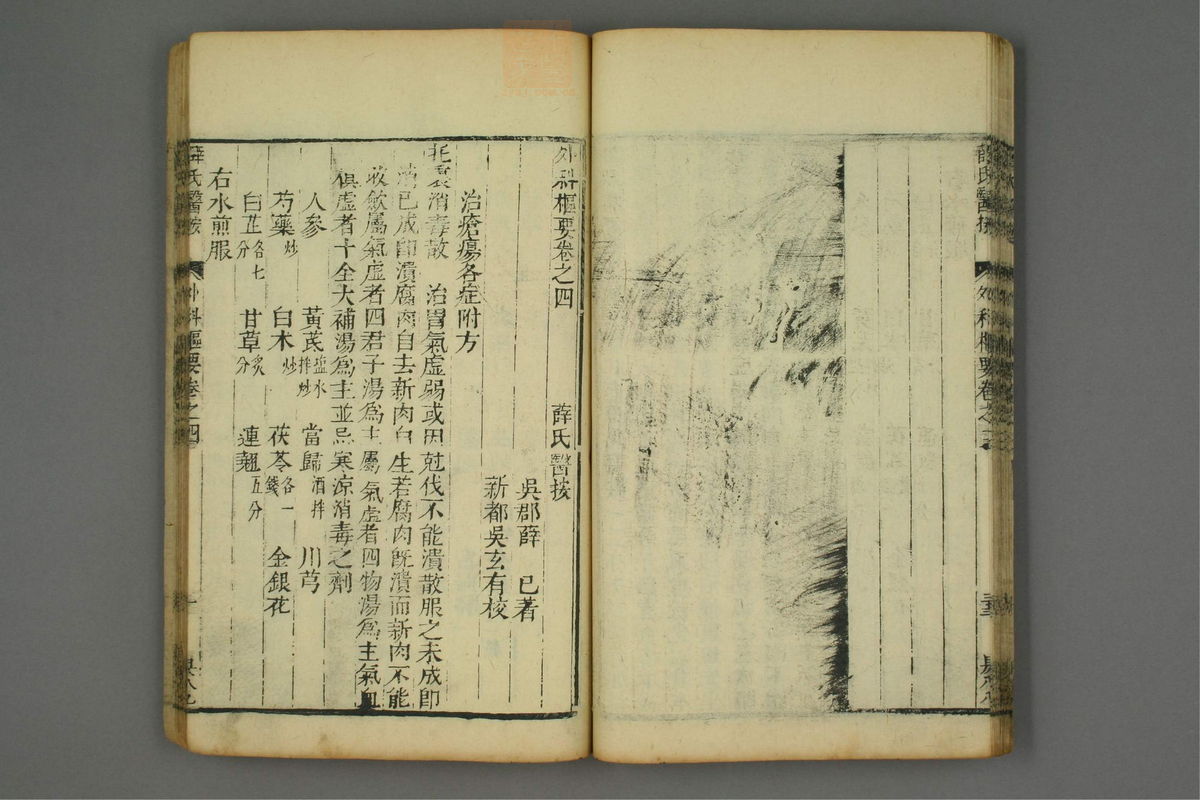 薛氏醫按 外科樞要卷之三
外科樞要卷之四 薛氏醫按
吳郡薛 已著
新都吳玄有校
治瘡瘍各症附方
托裏消毒散 治胃氣虛弱或因尅伐不能潰散服之未成即
消已成即潰腐肉自去新肉自生若腐肉既潰而新肉不能
收斂屬氣虛者四君子湯爲主屬氣虛者四物湯爲主氣血
俱虛者十全大補湯爲主並忌寒涼消毒之劑
人參 黃芪鹽水拌炒 當歸酒拌 川芎
芍藥炒 白木炒 茯苓各一錢 金銀花
白芷各七分 甘草炙分 連翹五分
右水煎服
薛氏醫按 外科樞要卷之四 一